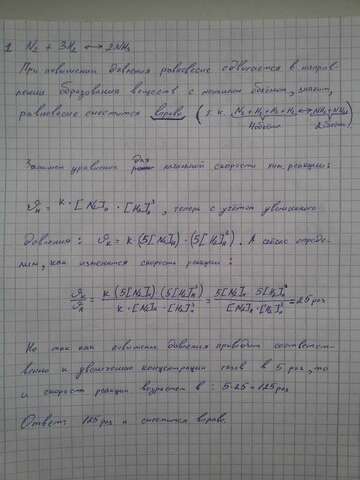 1. N₂ + 3H₂ ⟷ 2NH₃
При повышении давления равновесие сдвигается в направ
лении образования веществ с меньшим объёмом, значит,
равновесие сместится вправо ( т.к. N₂+H₂+H₂+H₂⟷NH₃+NH₃
4объёма 2объёма)
Запишем уравнение для начальной скорости хим. реакции:
υн = k·[N₂]н·[H₂]н³, теперь с учётом увеличенного
давления: υк = k·(5[N₂]н)·(5[H₂]н³). А сейчас опреде-
лим, как изменится скорость реакции:
υк/υн = k(5[N₂]н)(5[H₂]н³)/k·[N₂]н·[H₂]н³ = 5[N₂]н 5[H₂]н³/[N₂]н·[H₂]н³ = 25 раз
Но так как повышение давления приводит соответст-
венно к увеличению концентрации газов в 5 раз, то
и скорость реакции возрастет в: 5·25=125 раз
Ответ: 125 раз и сместится вправо.